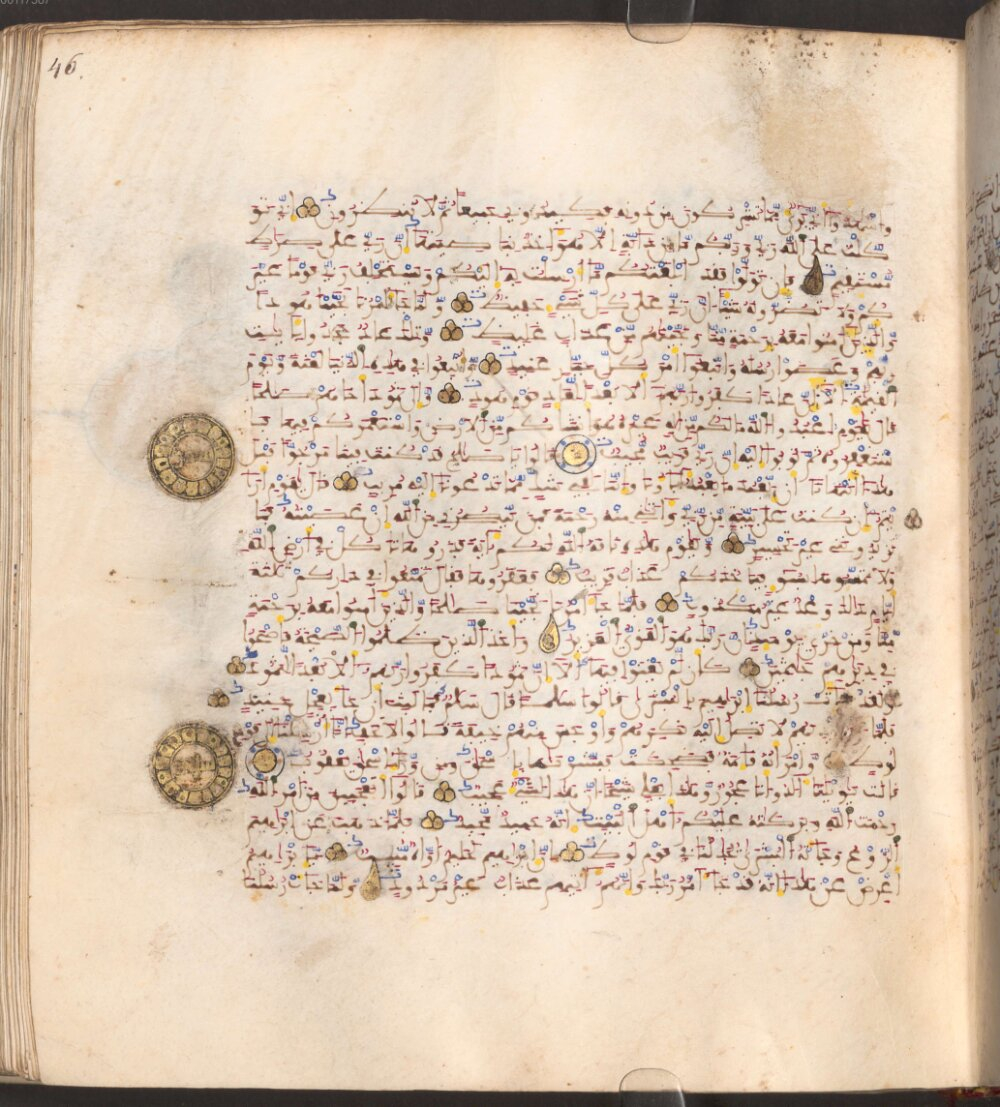 46.
واشهدوا اني بري مما تشركون من دونه فكيدوني جميعا ثم لا تنظرون اني تو
كلت على الله ربي وربكم ما من دابة الا هو اخذ بناصيتها ان ربي على صرط
مستقيم فان تولوا فقد ابلغتكم ما ارسلت به اليكم ويستخلف ربي قوما غير
كم ولا تضرونه شيا ان ربي على كل شي حفيظ ولما جا امرنا نجينا هودا
والذين امنوا معه برحمة منا ونجينهم من عذاب غليظ وتلك عاد جحدوا بايت
ربهم وعصوا رسله واتبعوا امر كل جبار عنيد واتبعوا في هذه الدنيا لعنة ويوم
القيمة الا ان عادا كفروا ربهم الا بعدا لعاد قوم هود والى ثمود اخاهم صلحا
قال يقوم اعبدوا الله ما لكم من اله غيره هو انشاكم من الارض واستعمركم فيها فا
ستغفروه ثم توبوا اليه ان ربي قريب مجيب قالوا يصلح قد كنت فينا مرجوا قبل
هذا اتنهينا ان نعبد ما يعبد اباونا واننا لفي شك مما تدعونا اليه مريب قال يقوم ارا
يتم ان كنت على بينة من ربي واتيني منه رحمة فمن ينصرني من الله ان عصيته فما
تزيدونني غير تخسير ويقوم هذه ناقة الله لكم اية فذروها تاكل في ارض الله
ولا تمسوها بسو فياخذكم عذاب قريب فعقروها فقال تمتعوا في داركم ثلثة
ايام ذلك وعد غير مكذوب فلما جا امرنا نجينا صلحا والذين امنوا معه برحمة
منا ومن خزي يومئذ ان ربك هو القوي العزيز واخذ الذين ظلموا الصيحة فاصبحوا
في ديرهم جثمين كان لم يغنوا فيها الا ان ثمودا كفروا ربهم الا بعدا لثمود
ولقد جات رسلنا ابرهيم بالبشرى قالوا سلما قال سلم فما لبث ان جا بعجل حنيذ
فلما را ايديهم لا تصل اليه نكرهم واوجس منهم خيفة قالوا لا تخف انا ارسلنا الى قوم
لوط وامراته قائمة فضحكت فبشرنها باسحق ومن ورا اسحق يعقوب
قالت يويلتى االد وانا عجوز وهذا بعلي شيخا ان هذا لشي عجيب قالوا اتعجبين من امر الله
رحمت الله وبركته عليكم اهل البيت انه حميد مجيد فلما ذهب عن ابرهيم
الروع وجاته البشرى يجدلنا في قوم لوط ان ابرهيم لحليم اوه منيب يابرهيم
اعرض عن هذا انه قد جا امر ربك وانهم اتيهم عذاب غير مردود ولما جات رسلنا